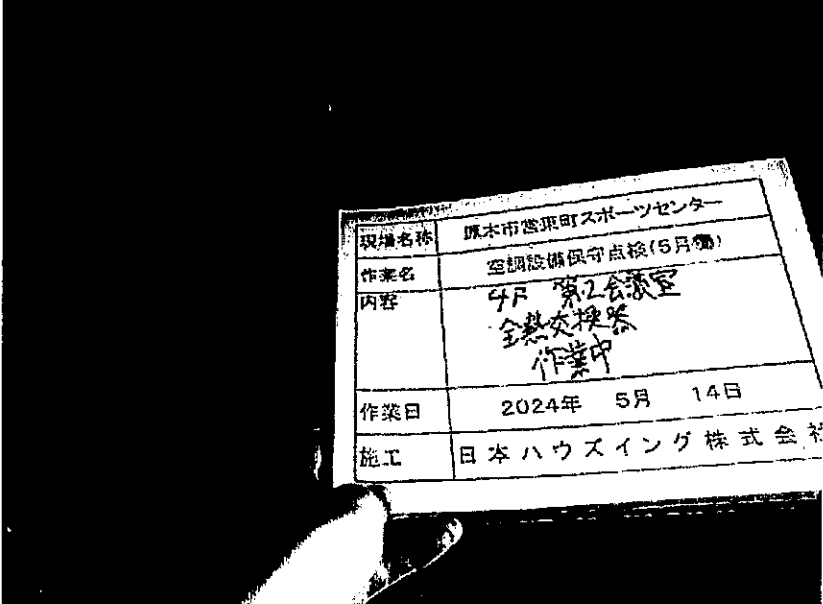 現場名称 厚木市営東町スポーツセンター
作業名 空調設備保守点検(5月
内容 4F 第2会議室
全熱交換器
作業中
作業日 2024年 5月 14日
施工 日本ハウズイング株式会社